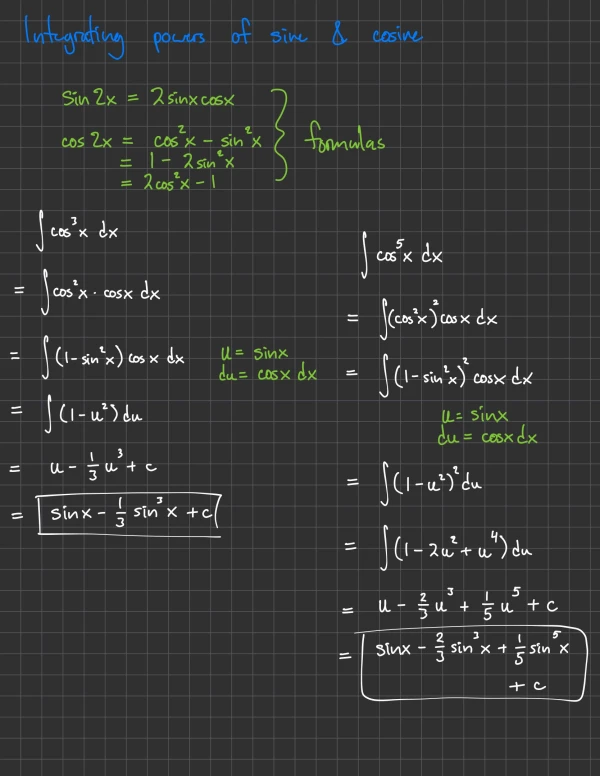 Integrating powers of sine & cosine
sin 2x = 2 sinx cosx
cos 2x = cos²x − sin²x
= 1 − 2 sin²x
= 2cos²x − 1
formulas
∫ cos³x dx
= ∫ cos²x · cosx dx
= ∫ (1 − sin²x) cos x dx
u = sinx
du = cosx dx
= ∫ (1 − u²) du
= u − 1/3 u³ + c
= sinx − 1/3 sin³x + c
∫ cos⁵x dx
= ∫ (cos²x)² cosx dx
= ∫ (1 − sin²x)² cosx dx
u = sinx
du = cosx dx
= ∫ (1 − u²)² du
= ∫ (1 − 2u² + u⁴) du
= u − 2/3 u³ + 1/5 u⁵ + c
= sinx − 2/3 sin³x + 1/5 sin⁵x
+ c